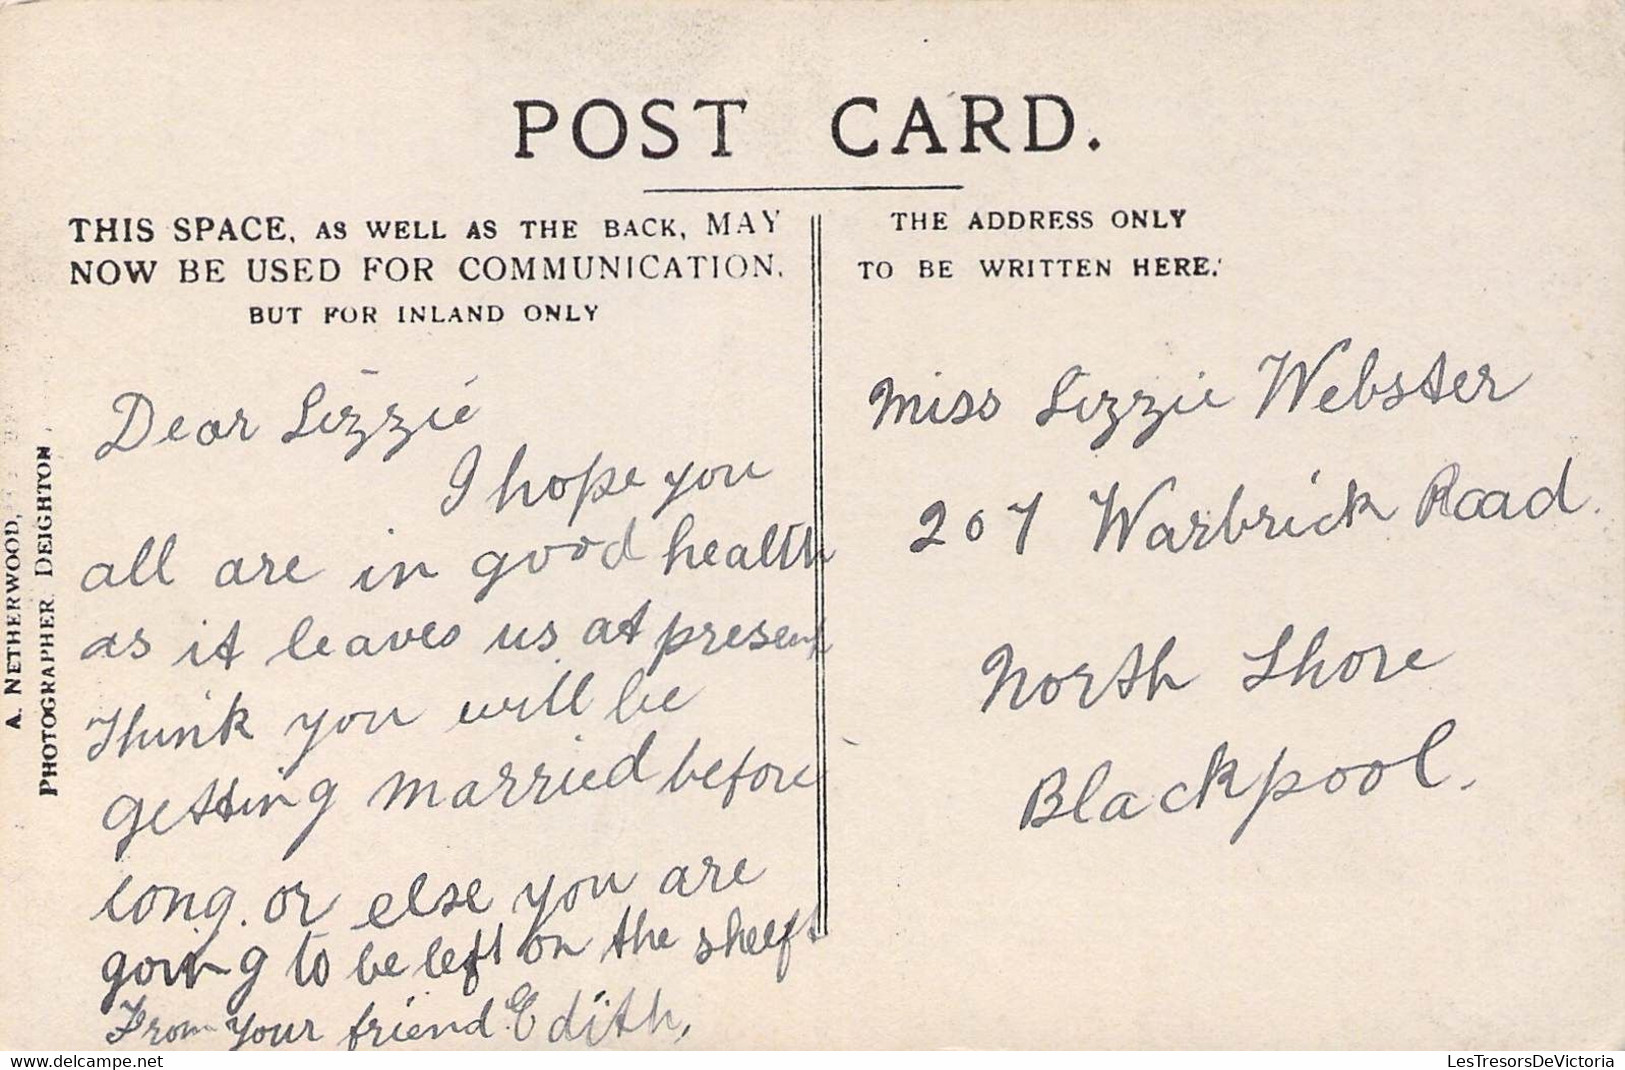 POST CARD.
THIS SPACE, AS WELL AS THE BACK, MAY
NOW BE USED FOR COMMUNICATION,
BUT FOR INLAND ONLY
THE ADDRESS ONLY
TO BE WRITTEN HERE.
A. NETHERWOOD,
PHOTOGRAPHER, DEIGHTON
Dear Lizzie
I hope you
all are in good health
as it leaves us at present
Think you will be
getting married before
long. or else you are
going to be left on the shelft
From your friend Edith,
Miss Lizzie Webster
207 Warbrick Road.
North Shore
Blackpool.
delcampe.net
LesTresorsDeVictoria